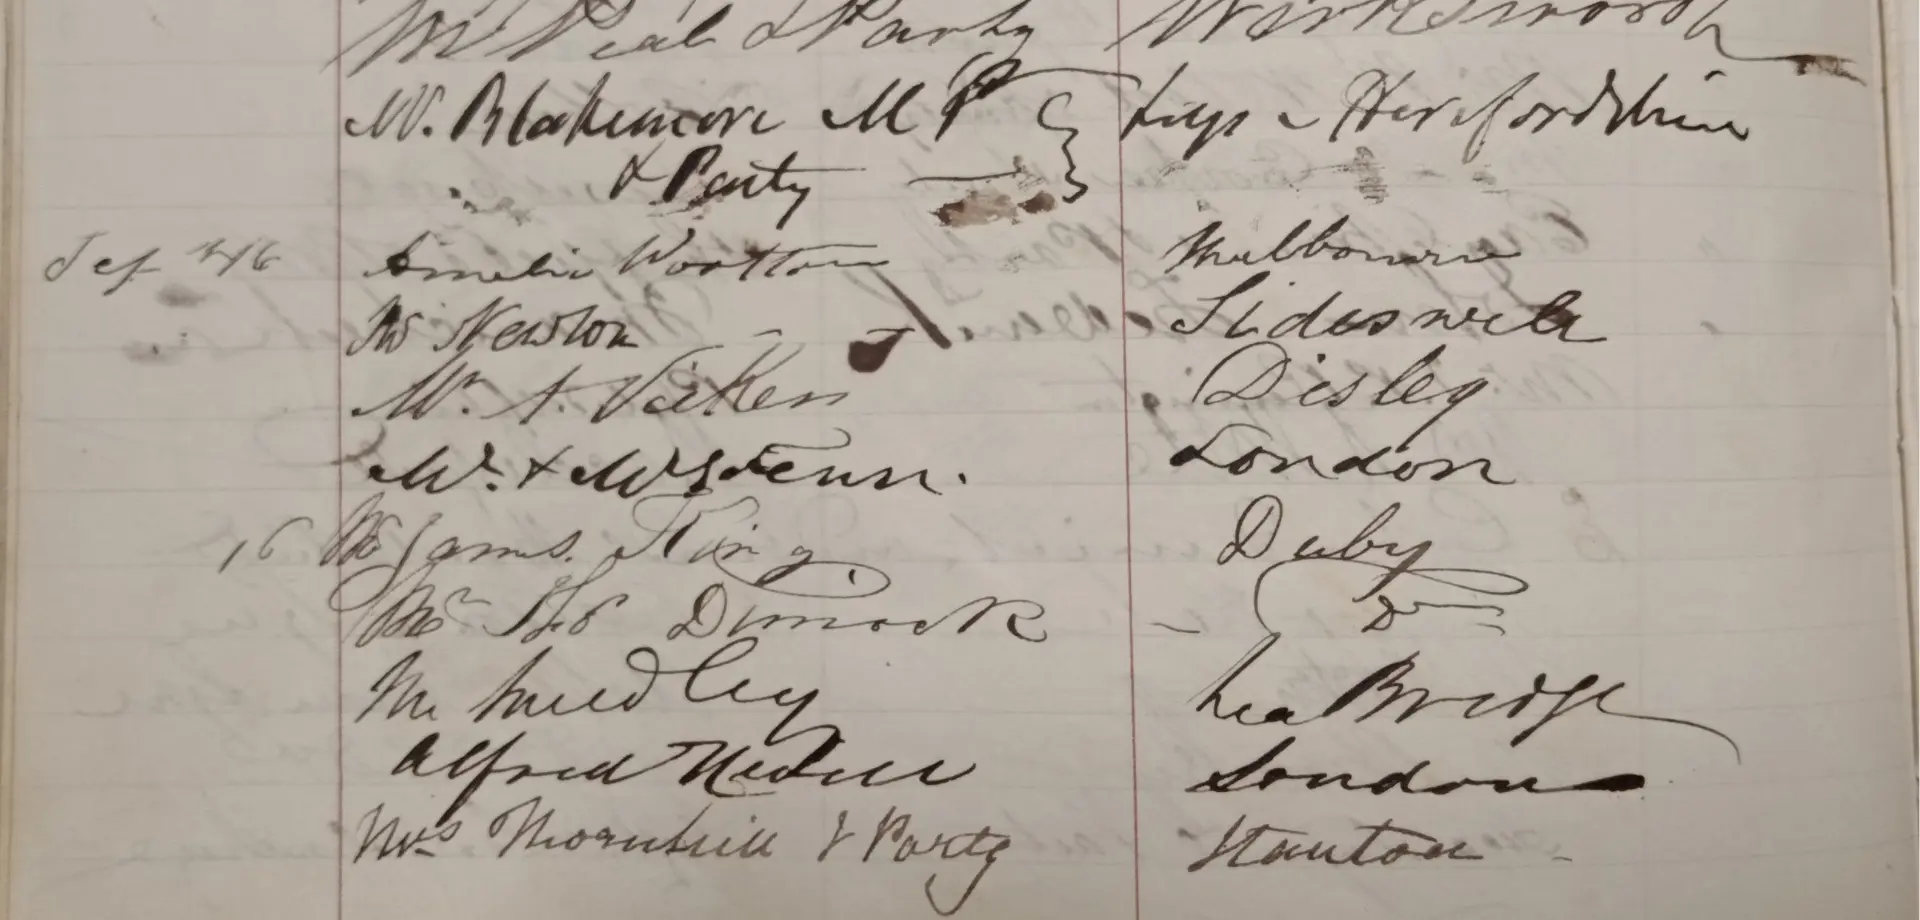 Mr Peal & Party Wirksworth
W. Blakemore MP Leys - Herefordshire
& Party
Sep 16 Amelia Wootton Melbourne
Mr Newton Tideswell
Mr. A. Vicken Disley
Mr. & Mrs Fenn. London
16 Mr James King Derby
Mr Dimock Do
Mr Smedley Lea Bridge
Alfred London
Mrs Thornhill & Party Stanton